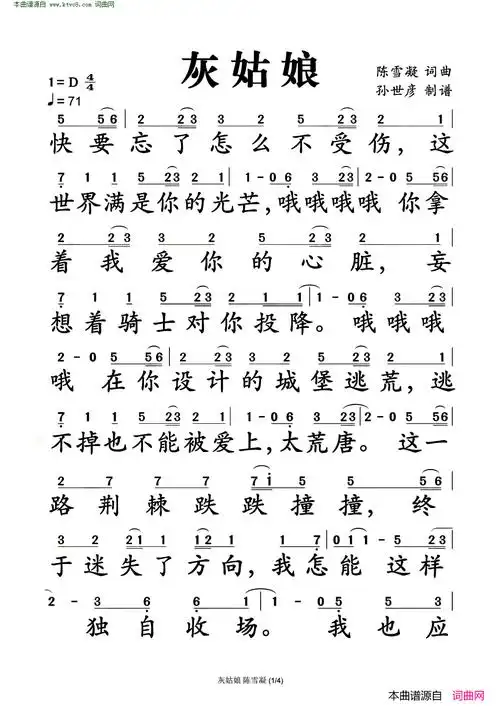 本曲谱源自 www.ktvc8.com 词曲网
灰姑娘
1=D 4/4
♩=71
陈雪凝 词曲
孙世彦 制谱
5 56 | 2 23 3 2 5 23 2 1 |
快要忘了怎么不受伤,这
7 1 1 5 23 2 1 | 1-06 3 23 | 2-05 56 |
世界满是你的光芒,哦哦哦哦 你拿
2 23 3 2 5 23 2 1 |
着我爱你的心脏,妄
7 1 1 5 23 2 1 1 | 1-06 3 23 |
想着骑士对你投降。哦哦哦
2-05 56 | 2 23 3 2 5 23 2 1 |
哦 在你设计的城堡逃荒,逃
7 1 1 5 23 2 1 | 1-06 3 23 | 2-05 56 |
不掉也不能被爱上,太荒唐。这一
2 7 7 7 7 i 5 5 56 |
路荆棘跌跌撞撞,终
3 2 21 1 12 1 1 7 | 011-5 5 |
于迷失了方向,我怎能 这样
-2-3 6 6 1 | 1-0 5 5 3 |
独自收场。 我也应
灰姑娘 陈雪凝 (1/4)
本曲谱源自 词曲网